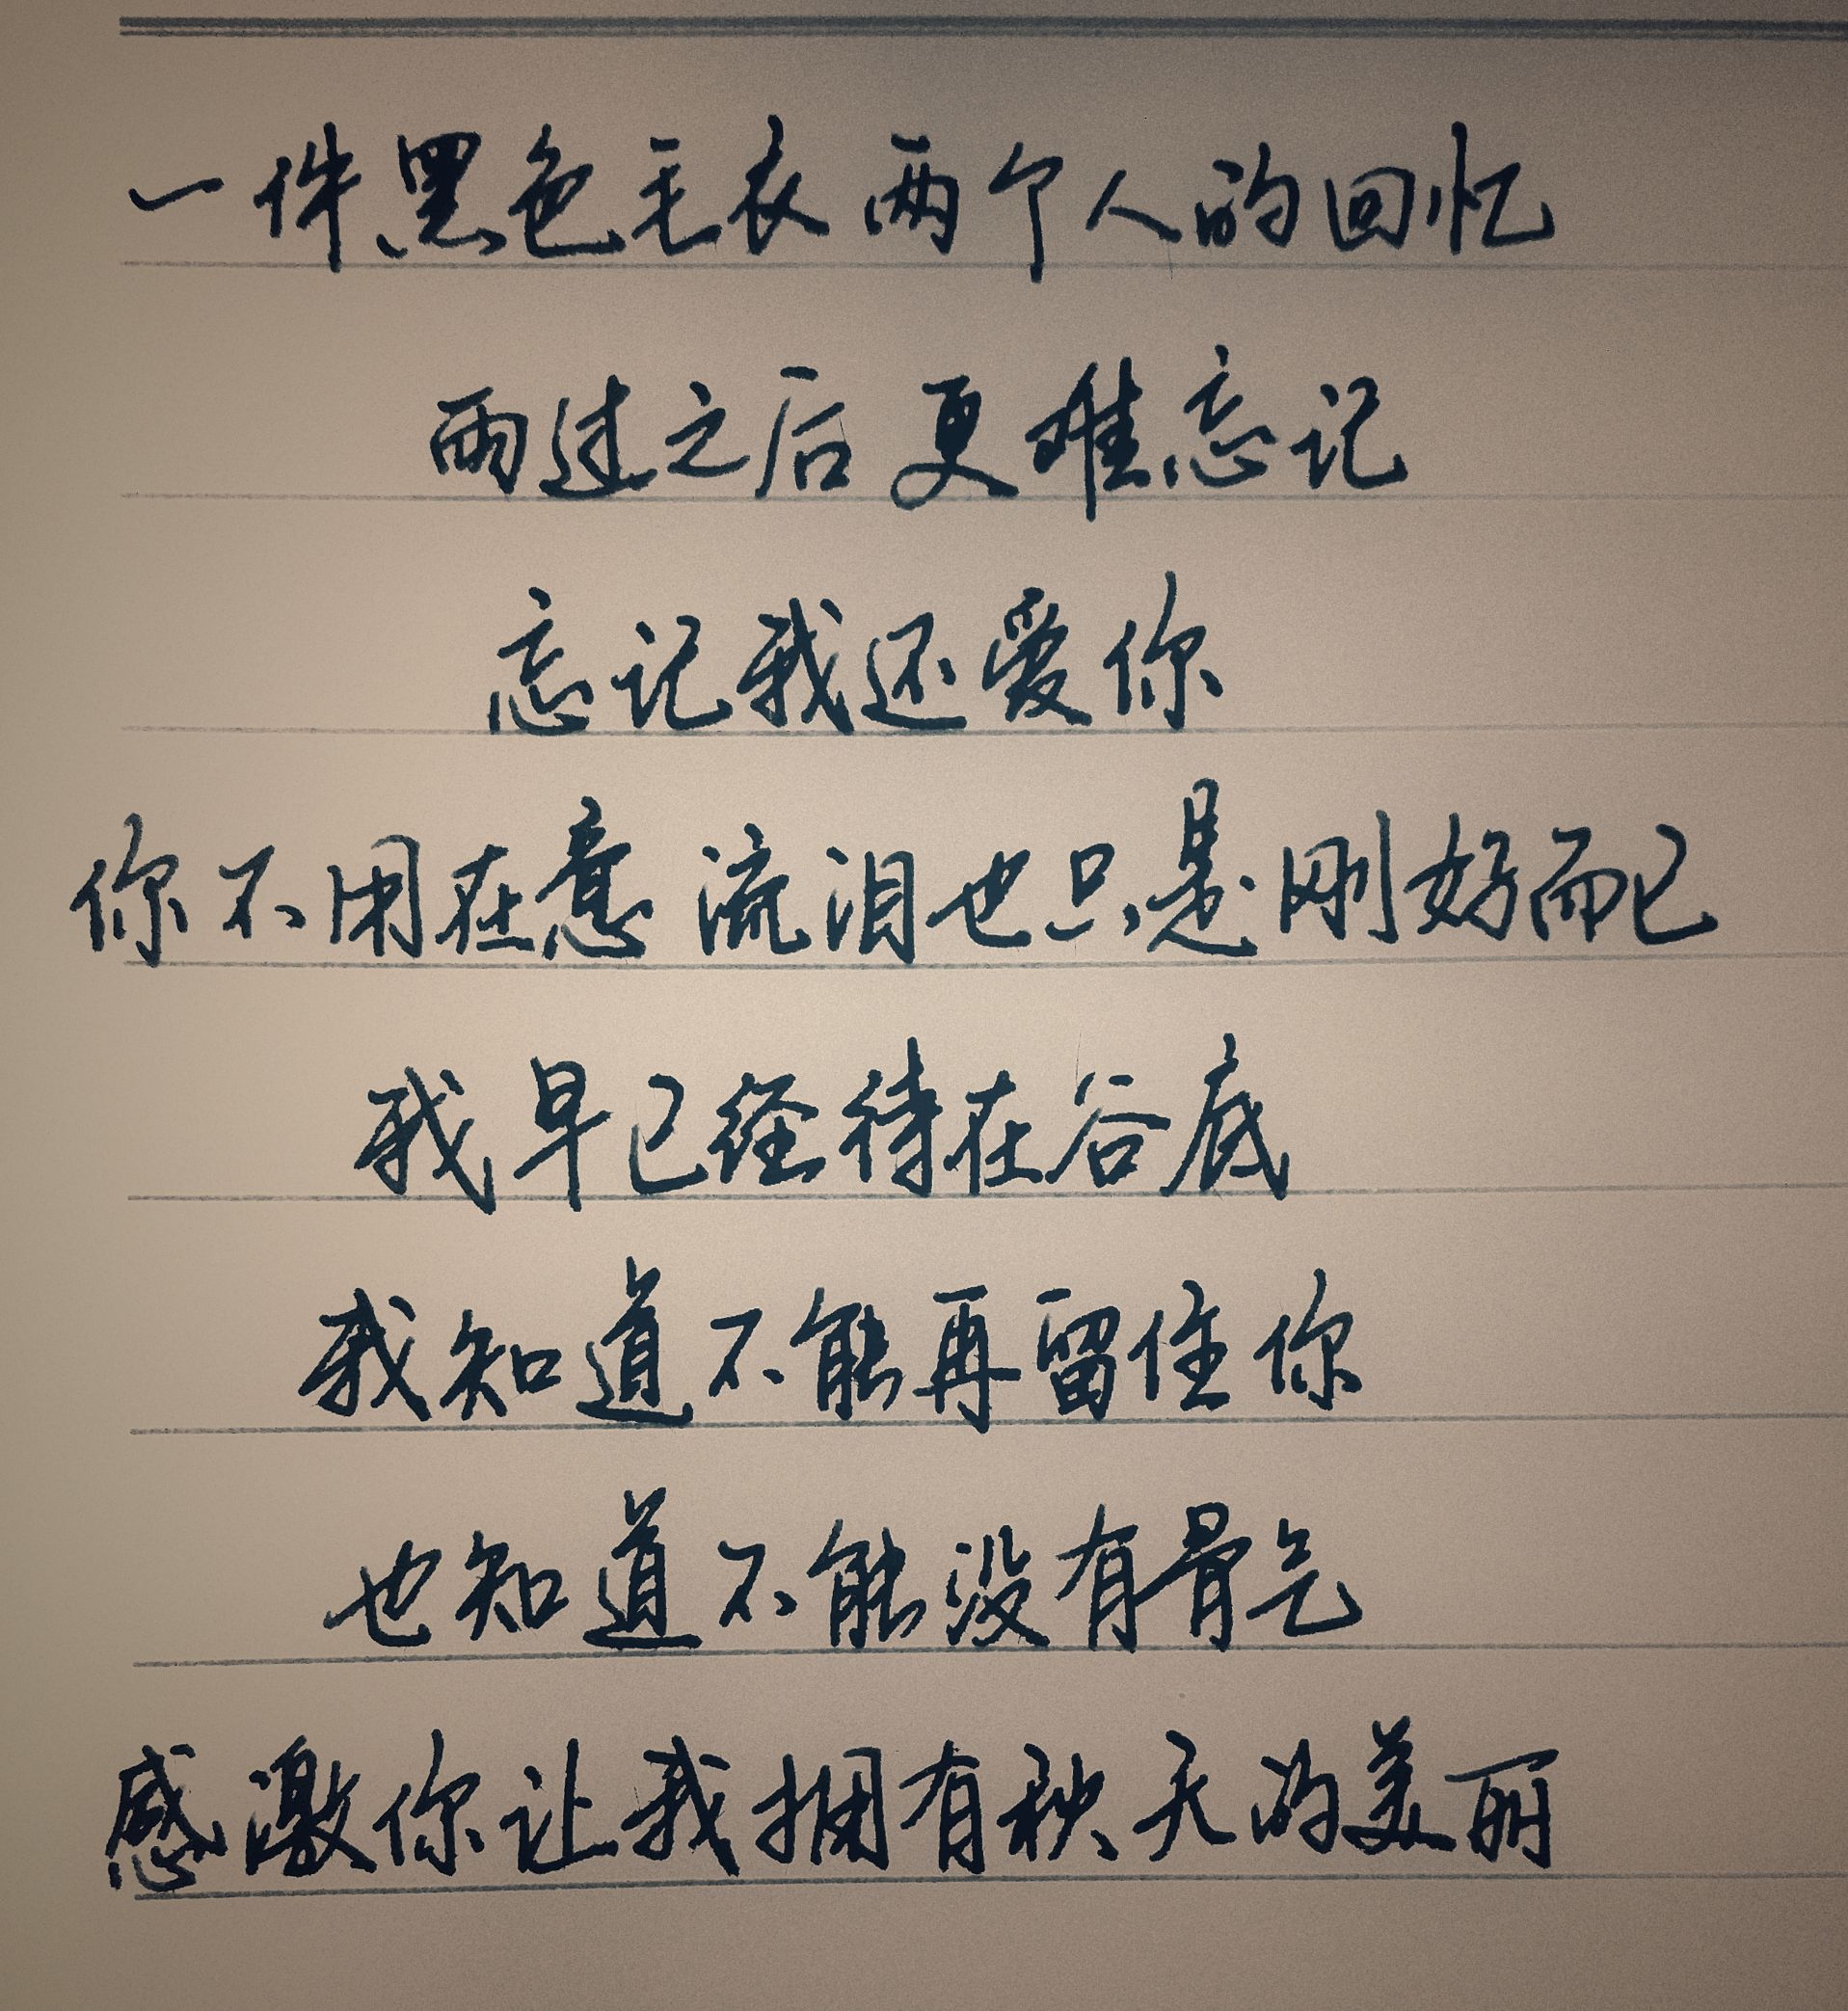 一件黑色毛衣 两个人的回忆
雨过之后 更难忘记
忘记我还爱你
你不用在意 流泪也只是刚好而已
我早已经待在谷底
我知道不能再留住你
也知道不能没有骨气
感激你让我拥有秋天的美丽